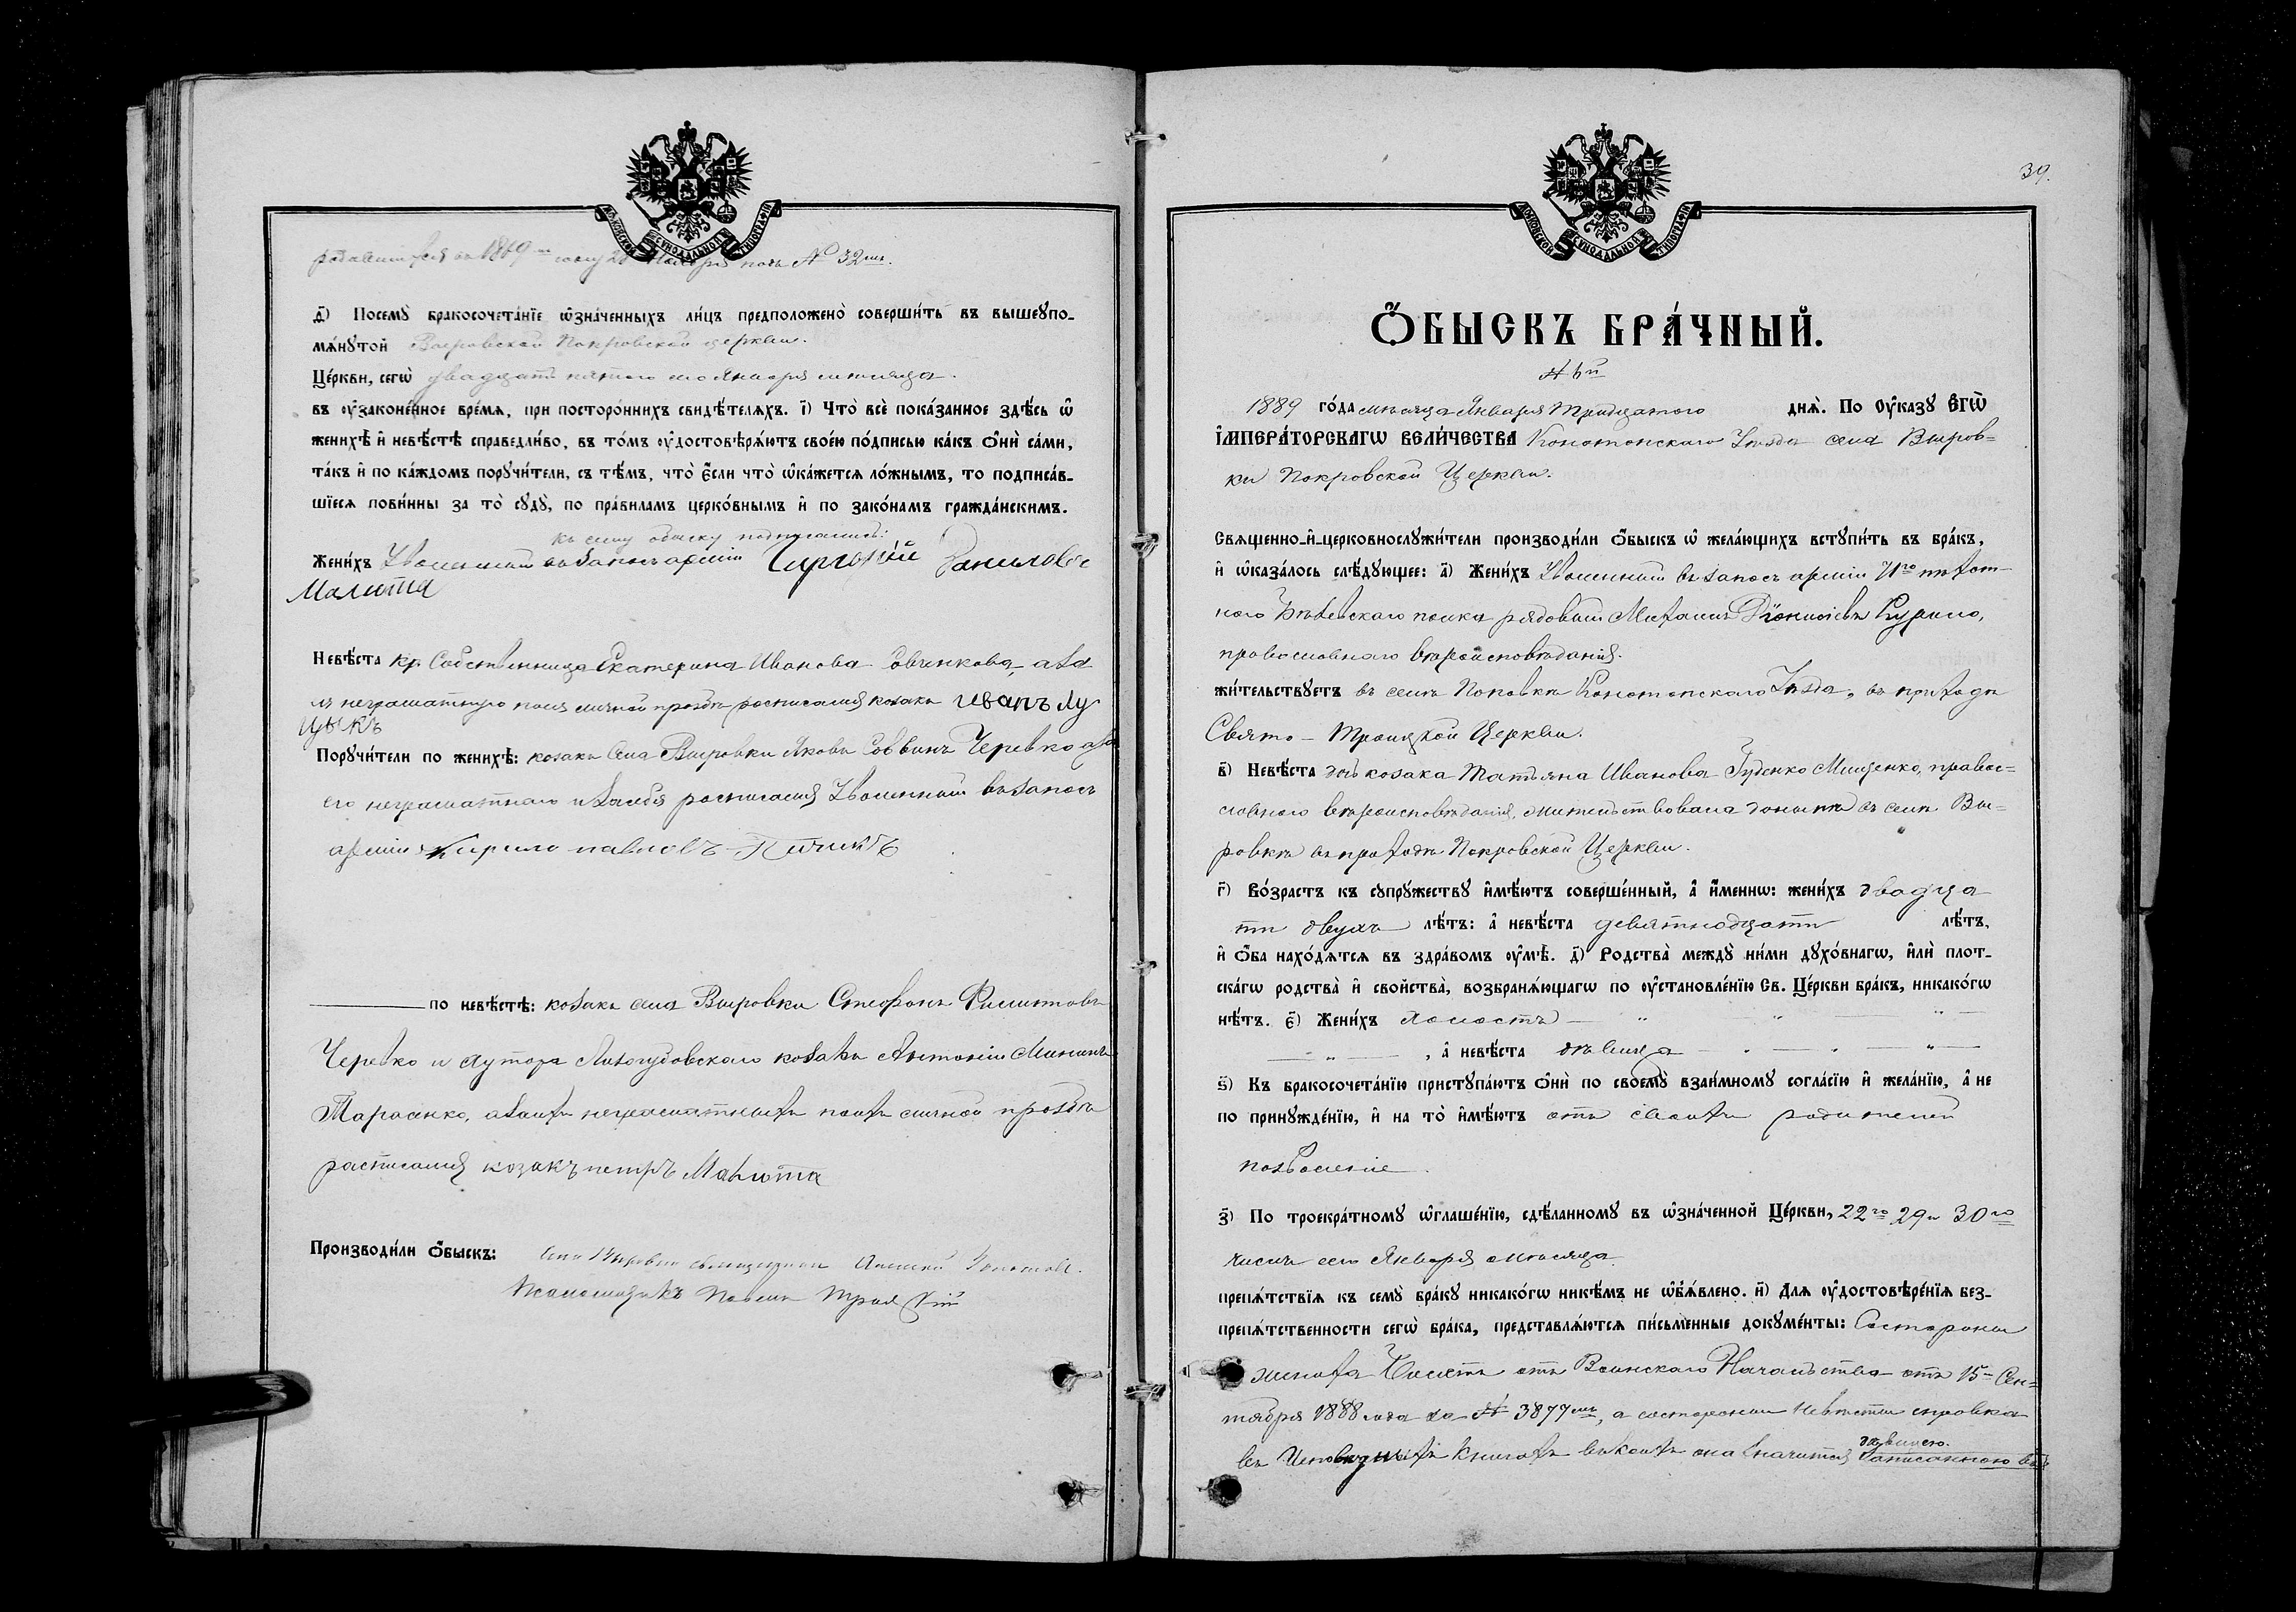 МОСКОВСКОЙ СѴНОДАЛЬНОЙ ТИПОГРАФІИ
въ 1869мъ году 28 Ноября подъ № 32мъ.
д҃і) Посемꙋ̀ бракосочета́нїе ѡ҆зна́ченныхъ ли́цъ предположено̀ соверши́ть въ вышеꙋпо-
мѧ́нꙋтой Выровской Покровской церкви.
Це́ркви, сегѡ̀ двадцать пятого сего Января месяца.
въ ᲂу҆зако́ненное вре́мѧ, при посторо́ннихъ свидѣ́телѧхъ. і҃) Что̀ всѐ пока́занное здѣ́сь ѡ҆
женихѣ̀ и҆ невѣ́стѣ справедли́во, въ то́мъ ᲂу҆достовѣрѧ́ютъ свое́ю по́дписью ка́къ ѻ҆нѝ са́ми,
та́къ и҆ по ка́ждомъ порꙋчи́тели, съ тѣ́мъ, что̀ є҆́сли что̀ ѡ҆ка́жетсѧ ло́жнымъ, то подписа́в-
шїесѧ пови́нны за то̀ сꙋдꙋ̀, по пра́виламъ церко́внымъ и҆ по зако́намъ гражда́нскимъ.
къ сему обыску подписались:
Жени́хъ Уволенный въ запасъ арміи Даниловъ
Малюта
Невѣ́ста кр. Собственница Екатерина Иванова Совинкова, а за
ея неграматную по ея личной прозбѣ росписался козакъ Иванъ Лу
цыкъ
Порꙋчи́тели по женихѣ̀: козакъ села Выровки Яковъ Саввинъ Черевко а за
его неграматнаго и за себя росписался Уволенный въ запасъ
арміи Кирило павловъ
по невѣ́стѣ: козакъ села Выровки Стефанъ Филиповъ
Черевко и хутора Лизогубовского козакъ Антоній Мининъ
Тарасенко, а за ихъ неграматныхъ по ихъ личной прозбѣ
расписался козакъ петръ Малюта
Производи́ли ѻ҆́быскъ: Села Выровки священникъ Алексей
Псаломщикъ Павелъ
39.
МОСКОВСКОЙ СѴНОДАЛЬНОЙ ТИПОГРАФІИ
Ѻ҆́БЫСКЪ БРА́ЧНЫЙ.
№ 6й
1889 го́да месяца Января Тридцатого днѧ̀. По Оу҆ка́зꙋ Є҆ГѠ̀
І҆МПЕРА́ТОРСКАГѠ ВЕЛИ́ЧЕСТВА Конотопского Уезда села Выров=
ки Покровской Церкви.
Свѧщенно-и҆-церковнослꙋжи́тели производи́ли ѻ҆́быскъ ѡ҆ жела́ющихъ встꙋпи́ть въ бра́къ,
и҆ ѡ҆каза́лось слѣ́дꙋющее: а҃) Жени́хъ Уволенный въ запасъ арміи 71го пехот-
ного Белевского полка рядовый Михаилъ Діонисіевъ Курило,
православного вероисповеданія.
жи́тельствꙋетъ въ селе Поповке Конотопского Уезда, въ приходе
Свято-Троицкой Церкви.
в҃) Невѣ́ста дочь козака Татьяна Иванова Гуденко Мищенко, правос=
лавного вероисповеданія, жительствовала доныне въ селе Вы=
ровке въ приходе Покровской Церкви.
г҃) Во́зрастъ къ сꙋпрꙋ́жествꙋ и҆мѣ́ютъ соверше́нный, а҆ и҆́меннѡ: жени́хъ двадца
ти двухъ лѣ́тъ: а҆ невѣ́ста девятнадцати лѣ́тъ,
и҆ ѻ҆́ба нахо́дѧтсѧ въ здра́вомъ ᲂу҆мѣ̀. д҃) Родства̀ междꙋ̀ ни́ми дꙋхо́внагѡ, и҆лѝ плот-
ска́гѡ родства̀ и҆ сво́йства̀, возбранѧ́ющагѡ по ᲂу҆становле́нїю Св. Це́ркви бра́къ, никако́гѡ
нѣ́тъ. є҃) Жени́хъ Холостъ — „ — „ — „ —
— „ — , а҆ невѣ́ста девица — „ — „ — „ —
ѕ҃) Къ бракосочета́нїю пристꙋпа́ютъ ѻ҆нѝ по своемꙋ̀ взаи́мномꙋ согла́сїю и҆ жела́нїю, а҆ не
по принꙋжде́нїю, и҆ на то̀ и҆мѣ́ютъ отъ своихъ родителей
позволеніе.
з҃) По троекра́тномꙋ ѡ҆глаше́нїю, сдѣ́ланномꙋ въ ѡ҆зна́ченной Це́ркви, 22го 29 и 30го
чиселъ сего Января месяца.
препѧ́тствїѧ къ семꙋ̀ бра́кꙋ никако́гѡ никѣ́мъ не ѡ҆б̾ѧ́влено. и҃) Длѧ ᲂу҆достовѣре́нїѧ без-
препѧ́тственности сегѡ̀ бра́ка, представлѧ́ютсѧ пи́сьменные докꙋме́нты: Состороны
жениха Билетъ отъ Воинского Начальства отъ 15 Сен=
тября 1888 года за № 3877мъ, а состороны Невесты справка
въ Исповедныхъ Книгахъ въ коихъ она значится девицею. Записанною въ